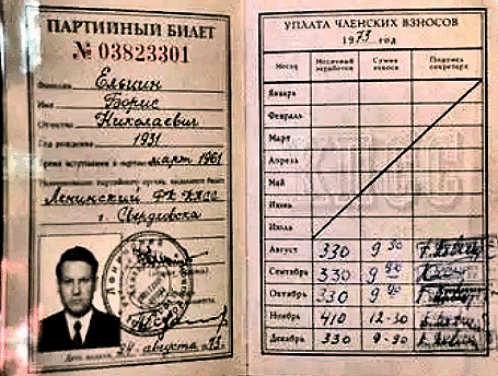 ПАРТИЙНЫЙ БИЛЕТ
№ 03823301
Фамилия Ельцин
Имя Борис
Отчество Николаевич
Год рождения 1931
Время вступления в партию март 1961
Наименование партийного органа, выдавшего билет
Ленинский РК КПСС
г. Свердловска
24 августа 1973 г.
УПЛАТА ЧЛЕНСКИХ ВЗНОСОВ
1973 год
Месяц Месячный заработок Сумма взноса Подпись секретаря
Январь
Февраль
Март
Апрель
Май
Июнь
Июль
КПСС
Август 330 9-90
Сентябрь 330 9-90
Октябрь 330 9-90
Ноябрь 410 12-30
Декабрь 330 9-90